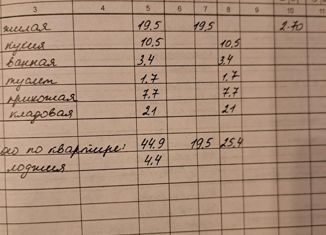 3 4 5 6 7 8 9 10 11
жилая 19.5 19.5 2.70
кухня 10.5 10.5
ванная 3.4 3.4
туалет 1.7 1.7
прихожая 7.7 7.7
кладовая 2.1 2.1
по квартире: 44.9 19.5 25.4
лоджия 4.4